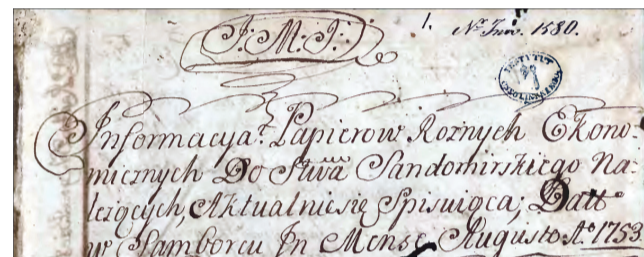 J: M: J:
1. No Inv. 1580.
INSTYTUT
OSSOLIŃSKICH
Informacya Papierow Roznych Ekono-
micznych Do Stwa Sandomirskiego Na-
lezących, Aktualnie się Spisuiąca; Datt
w Samborcu In Mense Augusto Ao 1753